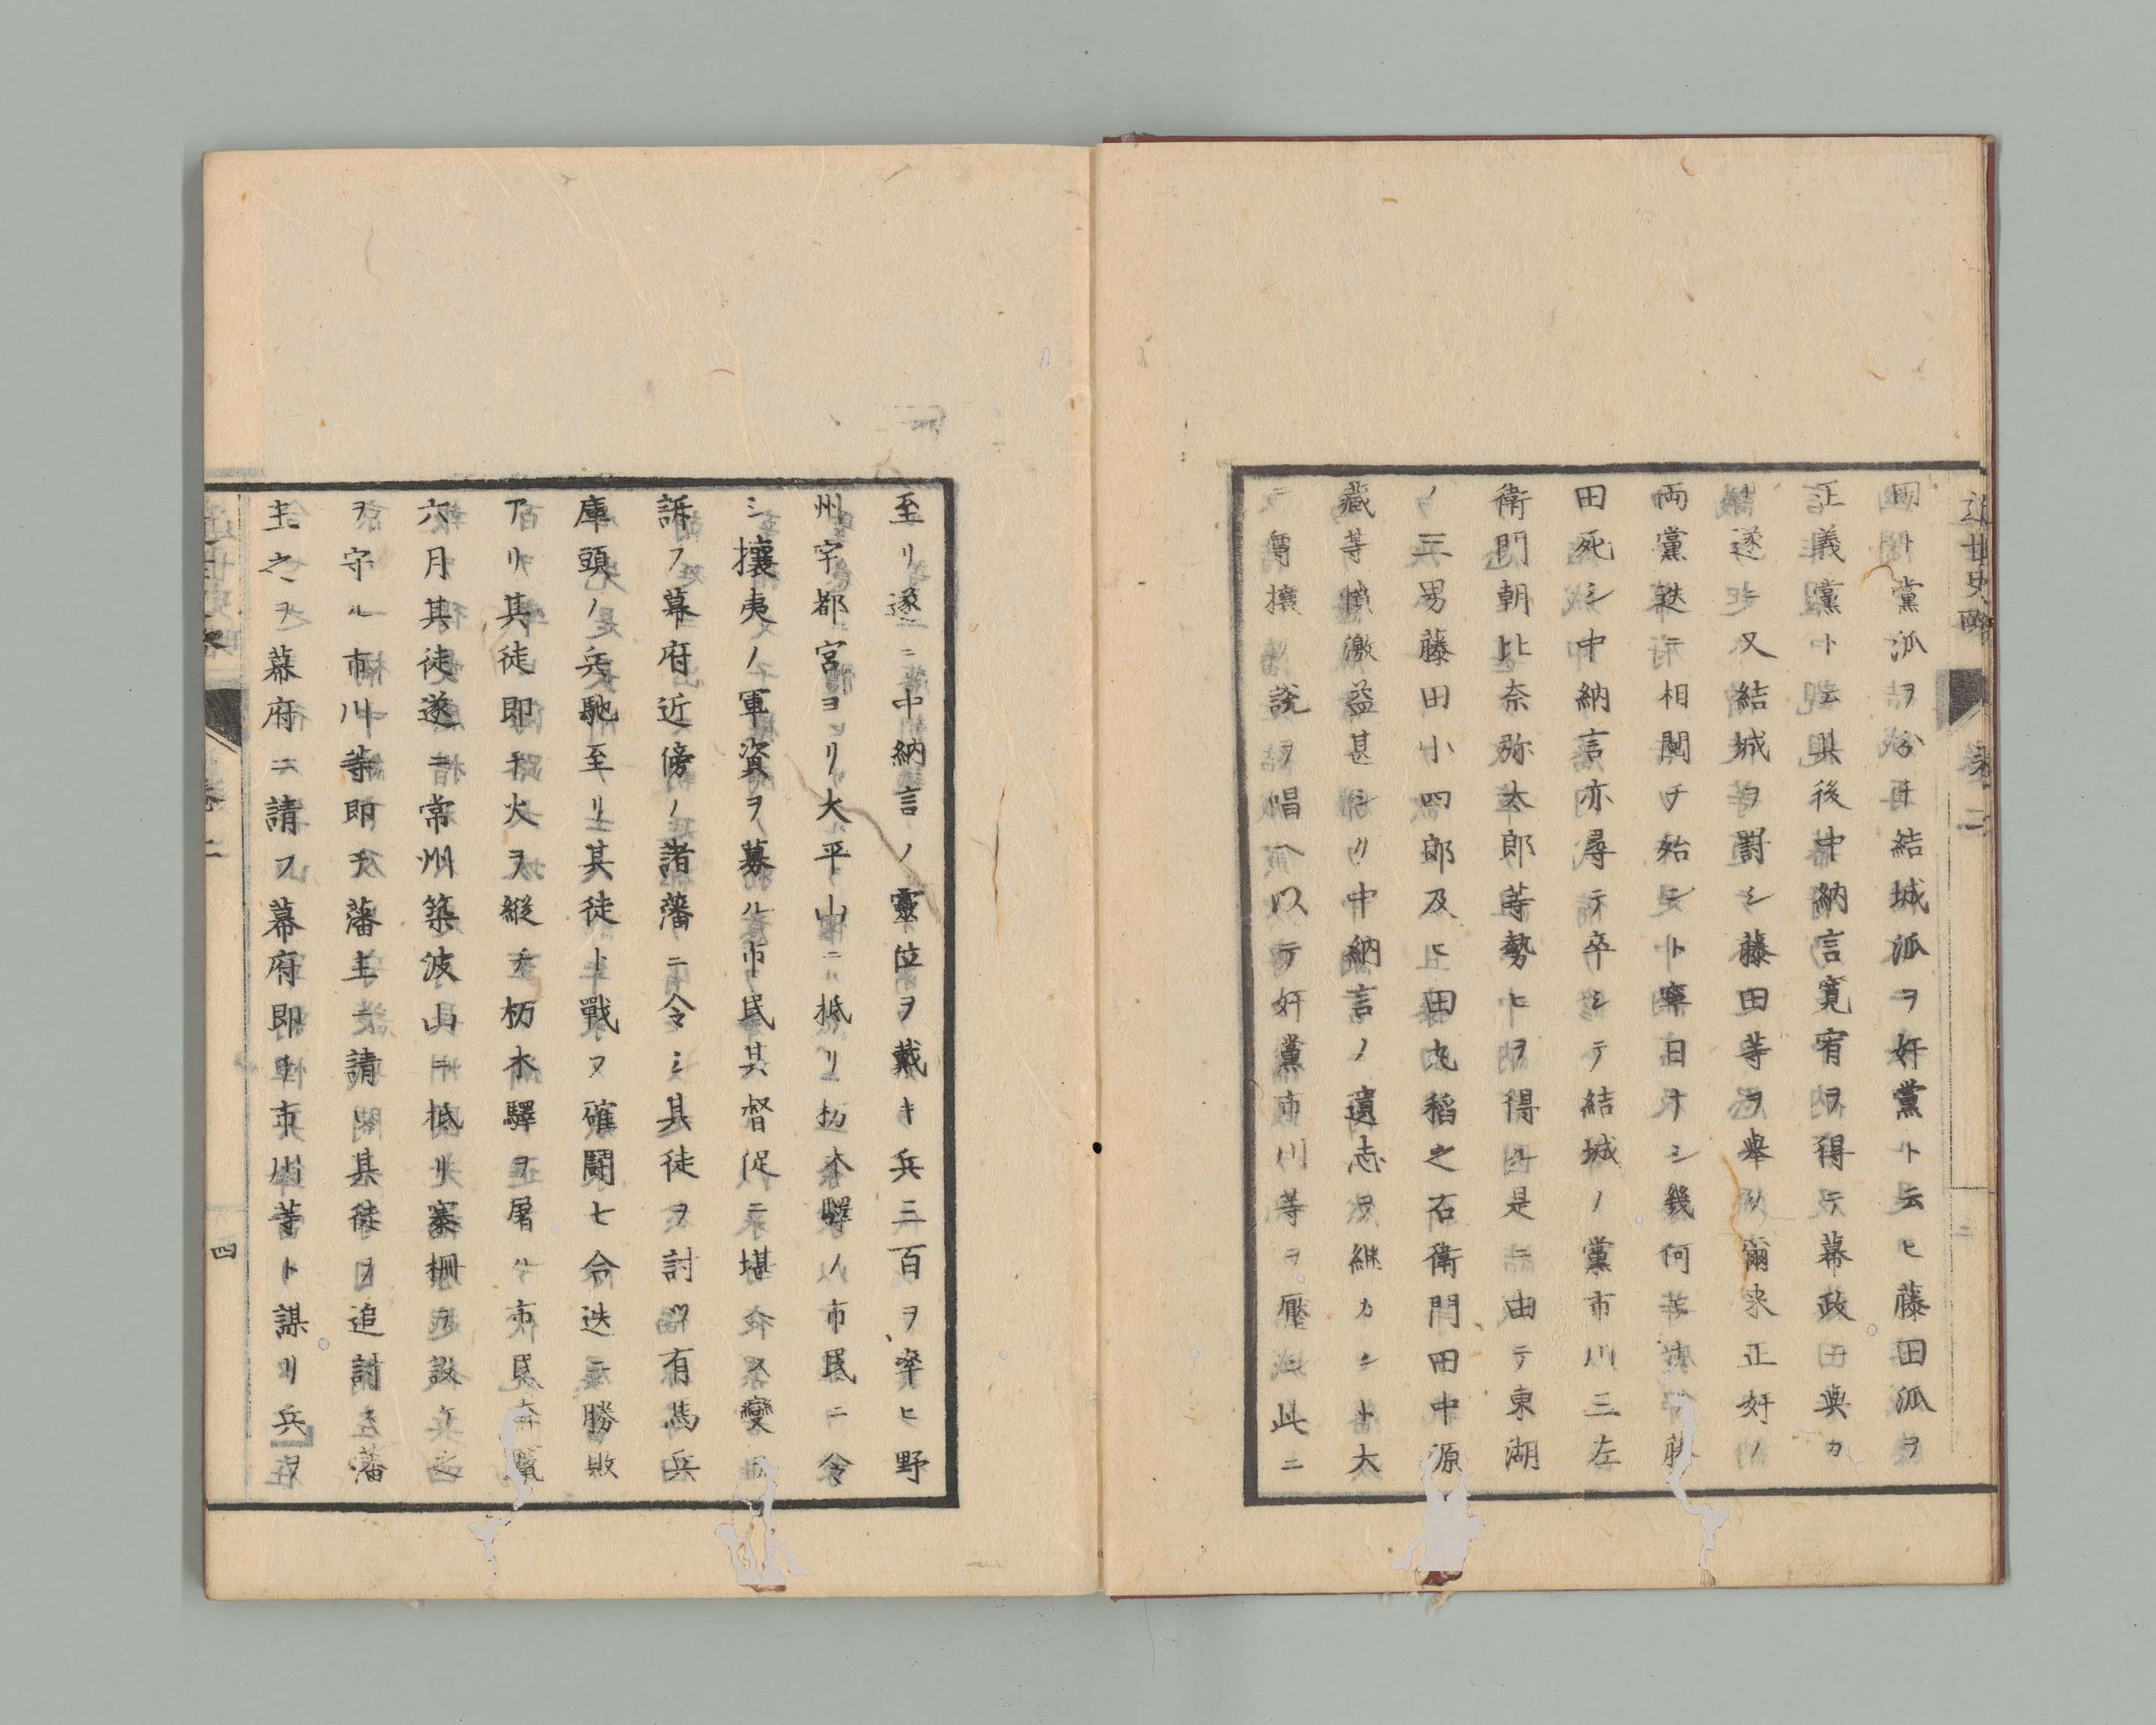 近世史略
卷二
國中黨派ヲ分チ結城派ヲ奸黨ト云ヒ藤田派ヲ
正義黨ト云其後中納言寛宥ヲ得テ幕政ニ與カ
ル遂ニ又結城ヲ罰シ藤田等ヲ擧ク爾来正奸ノ
両黨迭ニ相鬩キ始ント寧日ナシ幾何
田死シ中納言亦尋テ卒シテ結城ノ黨市川三左
衛門朝比奈弥太郎等勢ヒヲ得ル是ニ由テ東湖
ノ三男藤田小四郎及ヒ田丸稻之右衛門田中源
藏等憤激益甚シク中納言ノ遺志ヲ継カント大
ニ尊攘ノ説ヲ唱ヘ以テ奸黨市川等ヲ壓ス此ニ
至リ遂ニ中納言ノ靈位ヲ戴キ兵三百ヲ率ヒ野
州宇都宮ヨリ大平山ニ抵リ枥木驛ノ市民ニ令
シ攘夷ノ軍資ヲ募ル市民其督促ニ堪ヘス變ヲ
訴フ幕府近傍ノ諸藩ニ令シ其徒ヲ討ツ有馬兵
庫頭ノ兵馳至リ其徒ト戰フ確鬪七合迭ニ勝敗
アリ其徒即チ火ヲ縦チ枥木驛ヲ屠ル市民奔竄
六月其徒遂ニ常州築波山ニ抵リ寨柵ヲ設ケ之
ヲ守ル市川等即チ藩主ニ請ヒ其徒ヲ追討ス藩
主之ヲ幕府ニ請フ幕府即チ市川等ト謀リ兵ヲ
近世史略
卷二
四